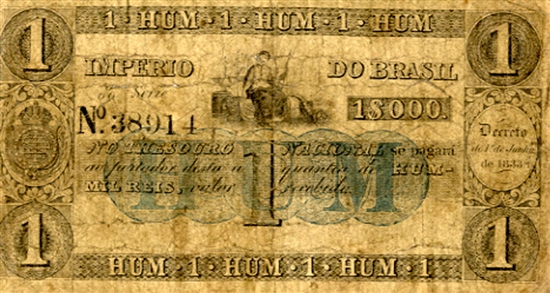 1 · HUM · 1 · HUM · 1 · HUM
1
1
IMPERIO DO BRASIL
Serie
1$000.
No. 38914
HUM
1
NO THESOURO NACIONAL se pagará
ao portador desta a quantia de HUM-
MIL REIS, valor recebido.
Decreto
de 1833
1
1
HUM · 1 · HUM · 1 · HUM · 1